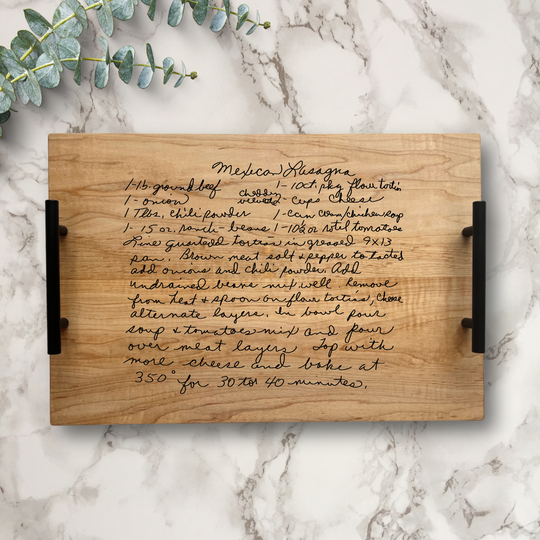 Mexican Lasagna
1-lb. ground beef 1-10ct. pkg flour tortia
1-onion cheddar velveeta cups cheese
1 Tbls, chili powder 1-can cream/chicken soup
1-15 oz. ranch-beans 1-10oz rotel tomatoes
Line quarterd tortias in greased 9x13
pan. Brown meat salt & pepper to tasted
add onions and chili powder. Add
undrained beans mix well. Remove
from heat & spoon on flour tortias, cheese
alternate layers. In bowl pour
soup & tomatoes mix and pour
over meat layers Top with
more cheese and bake at
350° for 30 to 40 minutes.